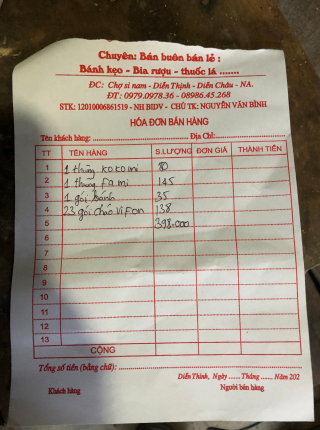 Chuyên: Bán buôn bán lẻ :
Bánh kẹo - Bia rượu - thuốc lá .......
ĐC: Chợ si nam - Diễn Thịnh - Diễn Châu - NA.
ĐT: 0979.0978.36 - 08986.45.268
STK: 12010006861519 - NH BIDV - CHỦ TK: NGUYỄN VĂN BÌNH
HÓA ĐƠN BÁN HÀNG
Tên khách hàng: Địa Chỉ:
TT TÊN HÀNG S.LƯỢNG ĐƠN GIÁ THÀNH TIỀN
1 1 thùng KOKOmi 80
2 1 thung Fami 145
3 1 gói bánh 35
4 23 gói cháo ViFon 138
5 398.000
6
7
8
9
10
11
12
13
CỘNG
Tổng số tiền (bằng chữ):
Diễn Thịnh, Ngày ...... Tháng ...... Năm 202
Khách hàng Người bán hàng